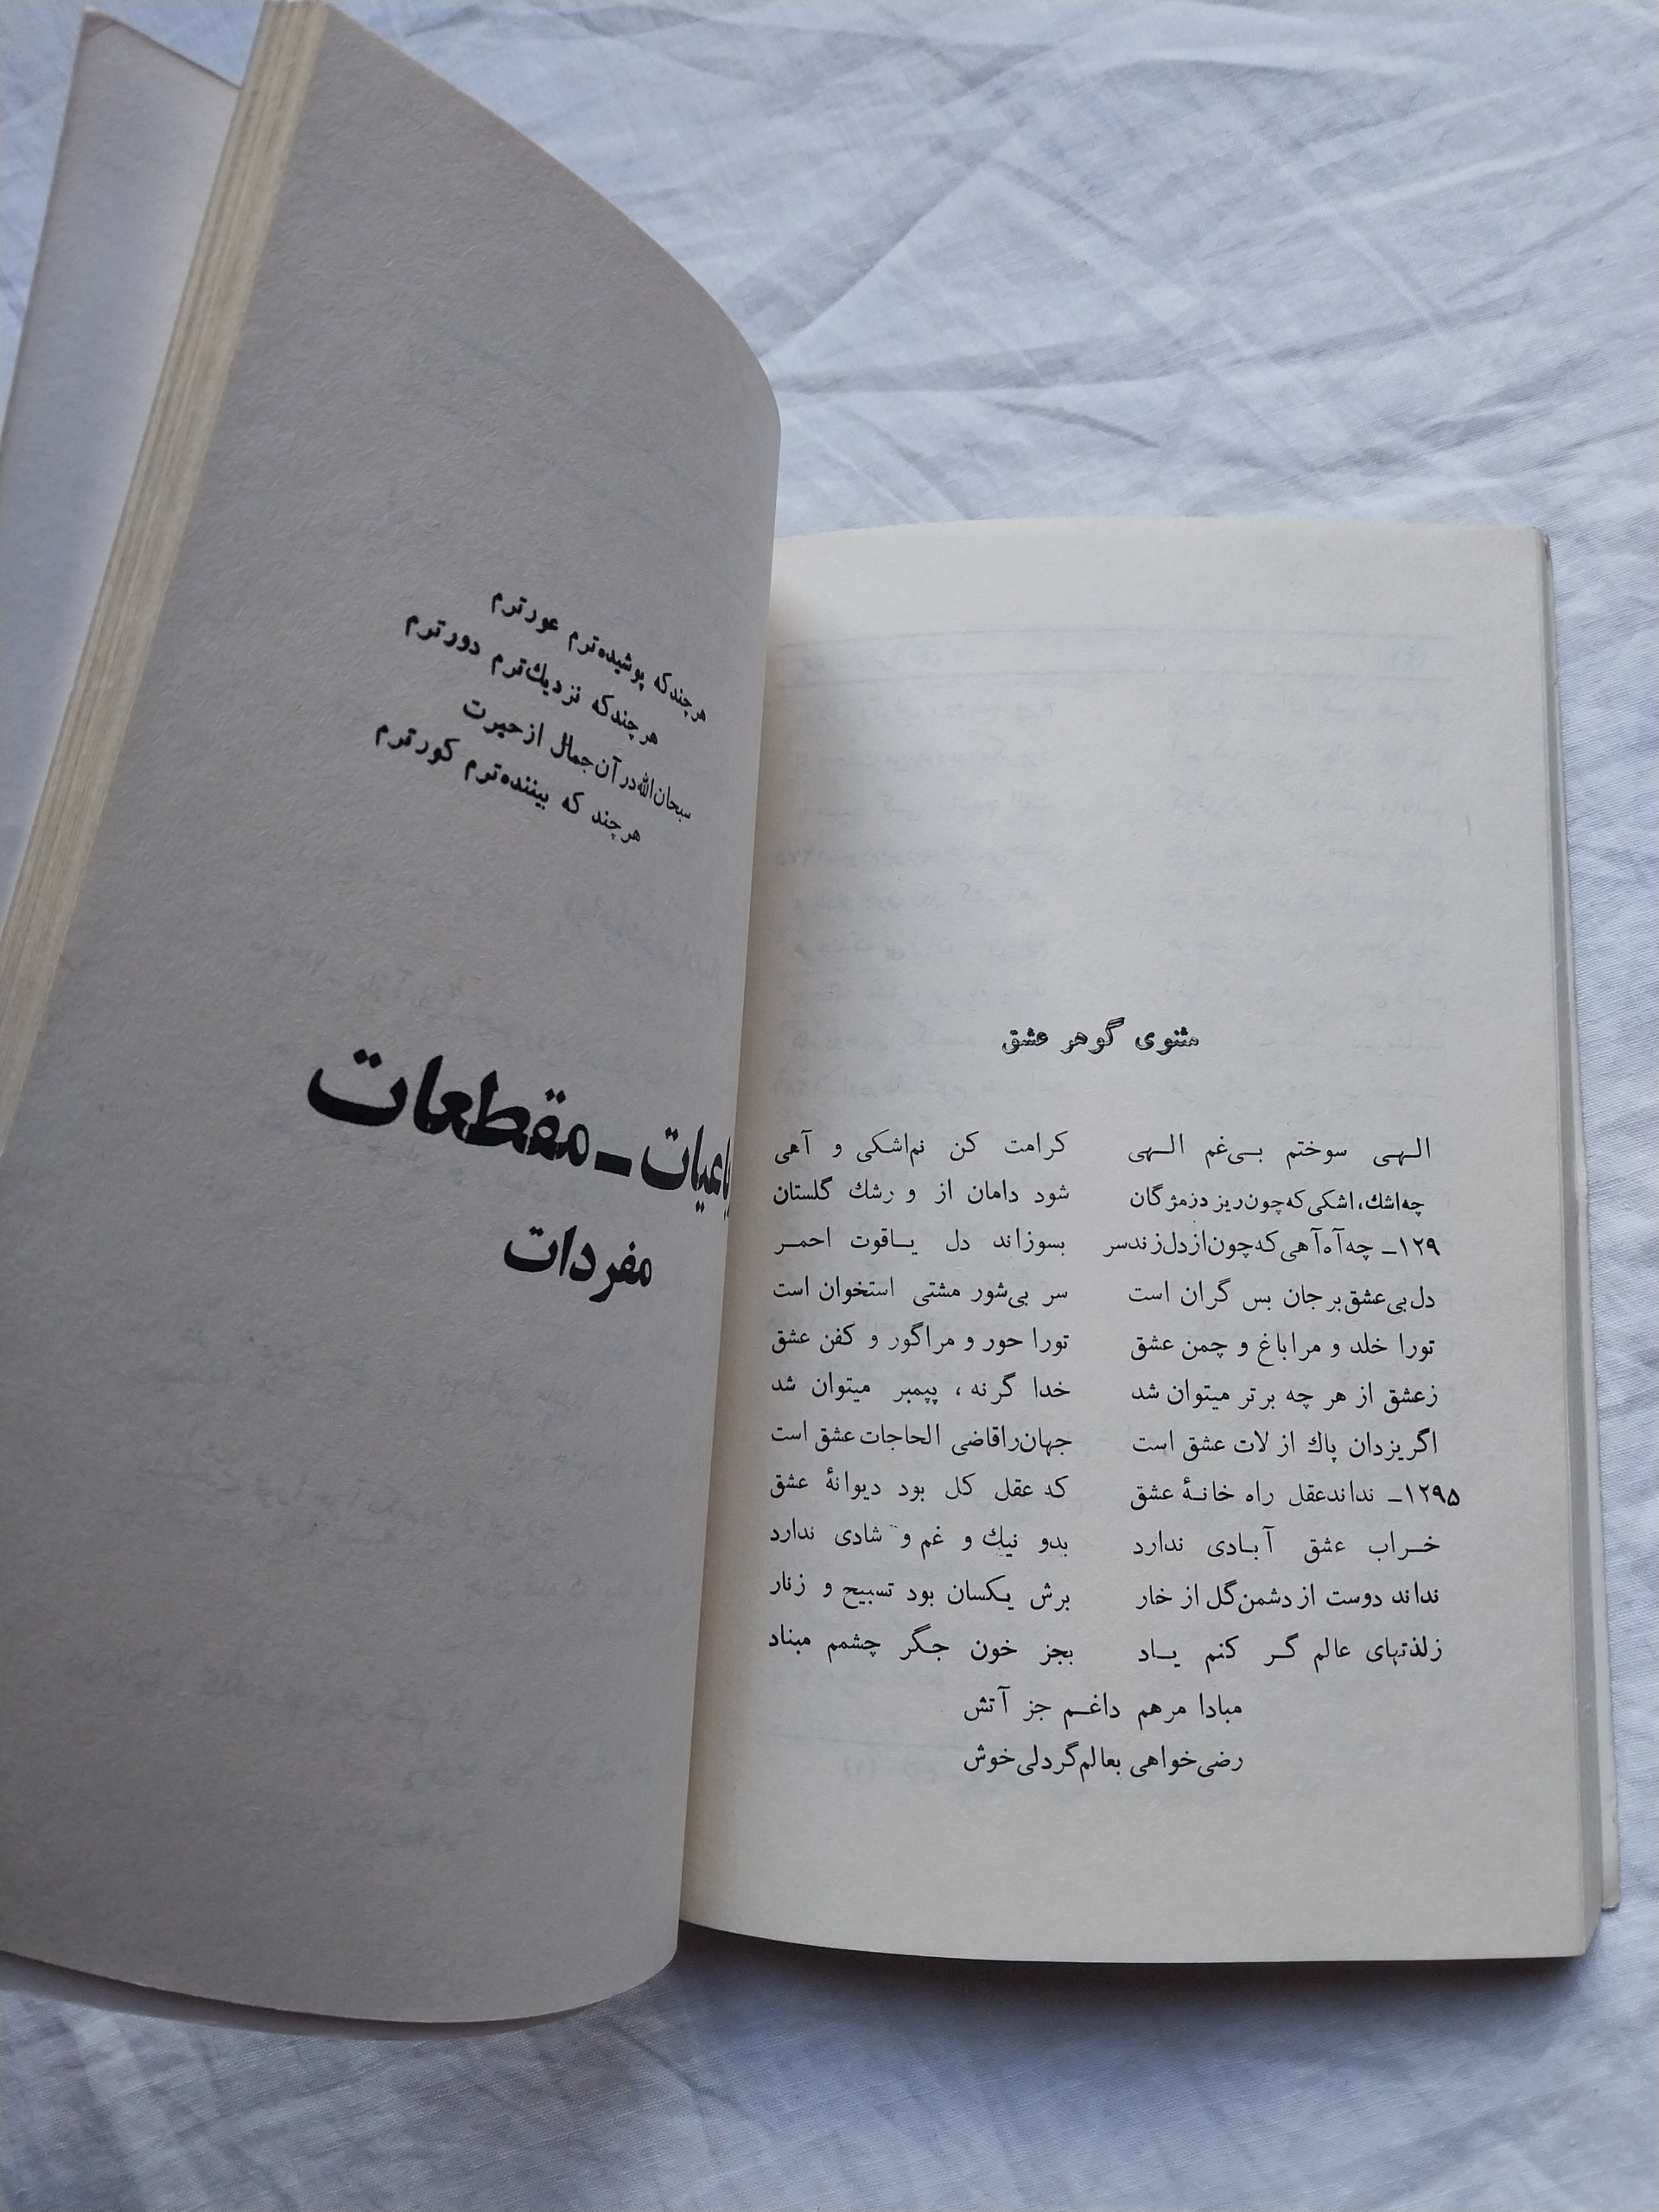 مثنوی گوهر عشق
الـهـی سوختم بـی‌غم الـهی کرامت کن نم‌اشکی و آهی
چه‌اشك، اشکی که‌چون‌ریز دزمژگان شود دامان از و رشك گلستان
۱۲۹ـ چه‌آه‌آهی‌که‌چون‌ازدل‌زندسر بسوزاند دل یـاقوت احمـر
دل‌بی‌عشق‌بر جان بس گران است سر بی‌شور مشتی استخوان است
تورا خلد و مراباغ و چمن عشق تورا حور و مراگور و کفن عشق
زعشق از هر چه برتر میتوان شد خدا گرنه ، پیمبر میتوان شد
اگریزدان پاك از لات عشق است جهان‌راقاضی الحاجات عشق است
۱۲۹۵ـ نداندعقل راه خانـهٔ عشق که عقل کل بود دیوانهٔ عشق
خـراب عشق آبـادی ندارد بدو نیك و غم و شادی ندارد
نداند دوست از دشمن‌گل از خار برش یـکسان بود تسبیح و زنار
زلذتهای عالم گـر کنم یـاد بجز خون جـگر چشمم مبناد
مبادا مرهم داغـم جز آتش
رضی‌خواهی بعالم‌گردلی‌خوش
هرچندکه پوشیده‌ترم عورترم
هرچندکه نزدیك‌ترم دورترم
سبحان‌الله‌در آن‌جمال ازحیرت
هرچند که بیننده‌ترم کورترم
ـ مقطعات
مفردات